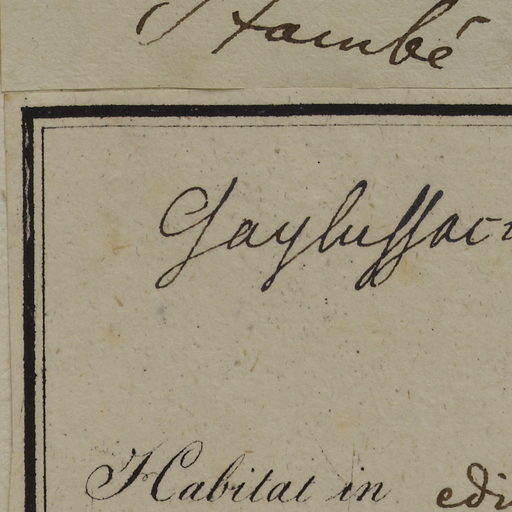 Itambé
Gaylussaci
Habitat in edi